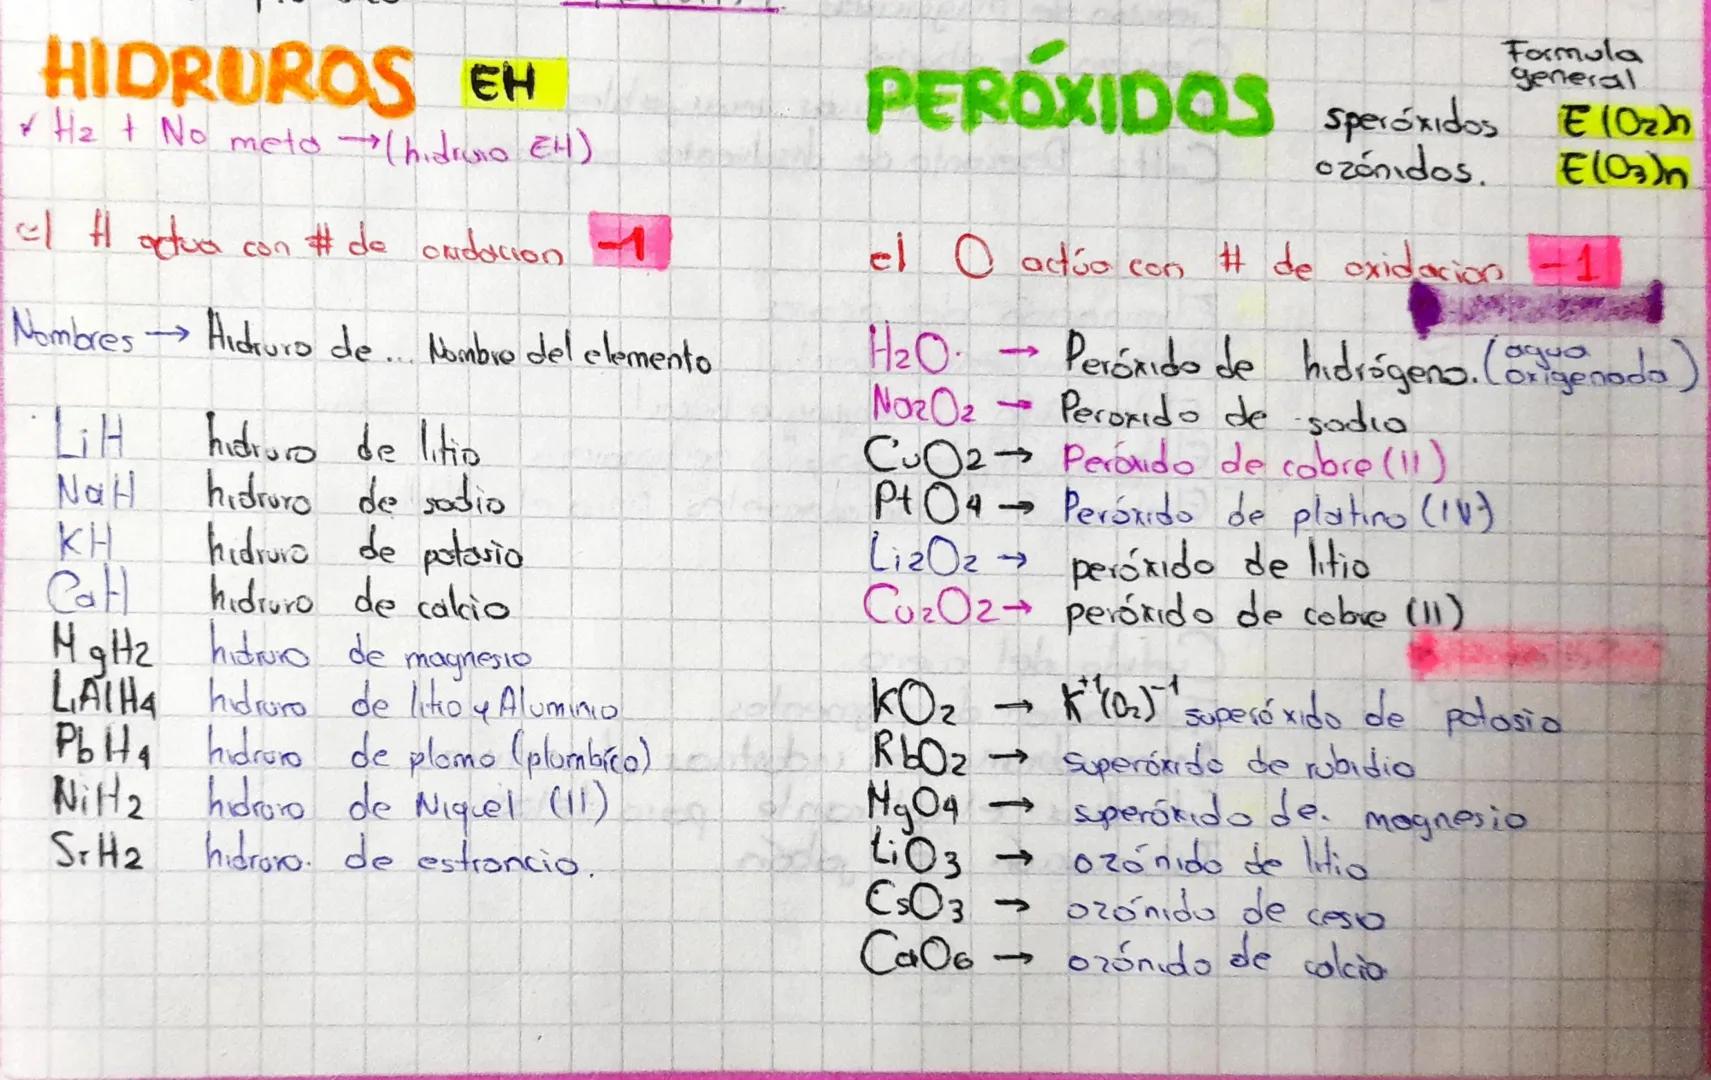 HIDRUROS EH
✓ H2 + No meta → (hidruro EH)
el H actua con # de oxidacion -1
Nombres → Hidruro de ... Nombre del elemento
LiH hidruro de litio
NaH hidruro de sodio
KH hidruro de potasio
CaH hidruro de calcio
MgH2 hidruro de magnesio
LiAlH4 hidruro de litio y Aluminio
PbH4 hidruro de plomo (plumbíco)
NiH2 hidruro de Niquel (II)
SrH2 hidruro. de estroncio.
PERÓXIDOS
Formula
general
speróxidos E(O2)n
ozónidos. E(O3)n
el O actúa con # de oxidacion -1
H2O. → Peróxido de hidrógeno. (agua oxigenada)
Na2O2 → Peroxido de sodio
CuO2 → Peróxido de cobre (II)
PtO4 → Peróxido de platino (IV)
Li2O2 → peróxido de litio
Cu2O2 → peróxido de cobre (II)
KO2 → K+1(O2)-1 superóxido de potasio
RbO2 → superóxido de rubidio
MgO4 → superóxido de. magnesio
LiO3 → ozónido de litio
CsO3 → ozónido de cesio
CaO6 → ozónido de calcio